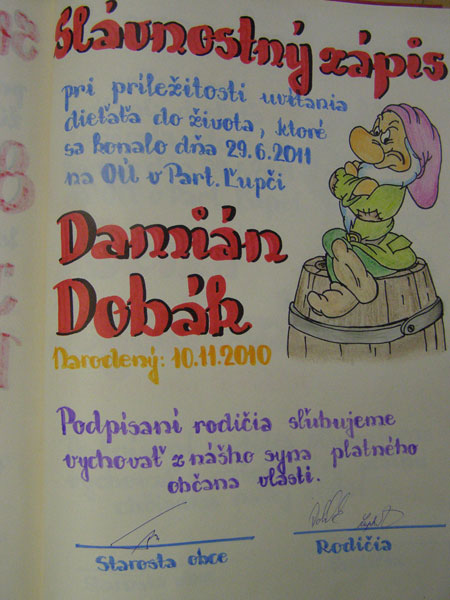 Slávnostný zápis
pri príležitosti uvítania
dieťaťa do života, ktoré
sa konalo dňa 29.6.2011
na OÚ v Part. Ľupči
Damián
Dobák
Narodený: 10.11.2010
Podpísaní rodičia sľubujeme
vychovať z nášho syna platného
občana vlasti.
Starosta obce
Rodičia